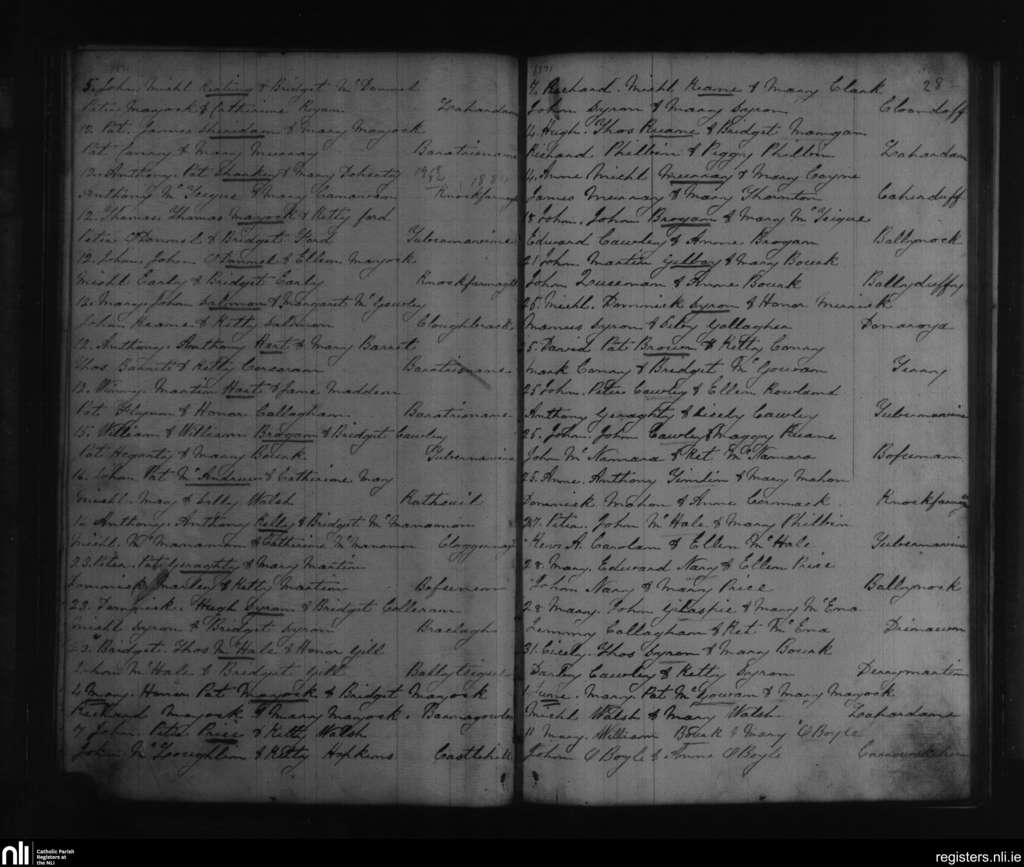 5. John. Michl Keating & Bridget McDonnel
Peter Mayock & Catherine Ryan Lahardam
12. Pat. James Sheridan & Mary Mayock
Pat & Mary Murray
12. Anthony. Pat & Mary Doherty
Anthony McTeigue & Mary
12. Thomas. Thomas Mayock & Kitty Ford
Peter O'Donnel & Bridget Ford Tubernavine
12. John. John O'Donnel & Ellen Mayock
Michl Early & Bridget Early
12. Mary. John Salmon & Margaret McGowley
John Keane & Kitty Salmon Cloughbrack
12. Anthony. Anthony Hart & Mary Barrett
Thos Barrett & Kitty Corcoran
13. Winny. Martin Hart & Jane Madden
Pat. Glynn & Honor Callagham.
15. William & William Brogan & Bridget Cawley
Pat Hegarty & Mary Bourk Tubernavine
16. John Pat McAndrew & Catherine May
Michl. May & Silly Walsh Rathouil
16. Anthony. Anthony Kelly & Bridget McManamon
Michl. McManamon & Catherine McManamon
23. Peter. Pat Geraghty & Mary Martin
Dominick & Kitty Martin Bofeenan
23. Dominick. Hugh Syron & Bridget Colleran
Michl Syron & Bridget Syron
23. Bridget. Thos McHale & Honor Gill
John McHale & Bridget Gill
4 Mary. Honor Pat Mayock & Bridget Mayock
Richard Mayock & Mary Mayock.
7 John. Peter Price & Kitty Walsh
John McLoughlin & Kitty Hopkins Castlehill
28
7. Richard. Michl Keane & Mary Clark
John Syron & Mary Syron
14. Hugh. Thos Ruane & Bridget Mangan
Richard. Philbin & Peggy Philbin Lahardam
14. Anne Michl Murray & Mary Coyne
James Murray & Mary Thornton Caherduff
18 John. John Brogan & Mary McTeigue
Edward Cawley & Anne Brogan Ballynock
21 John Martin Gilboy & Mary Bourk
John & Anne Bourk Ballyduffy
25. Michl. Dominick Syron & Honor Merrick
Manus Syron & Gallagher
25. David Pat Brown & Kitty Conry
Mark Conry & Bridget McGowan
25 John. Peter Cawley & Ellen Rowland
Anthony Geraghty & Cicely Cawley Tubernavine
25. John. John Cawley & Maggy Ruane
John McNamara & Ket McNamara Bofeenan
25. Anne. Anthony Timlin & Mary Mahon
Dominick Mahon & Anne Cormack
27. Peter. John McHale & Mary Philbin
Revd A. Carolan & Ellen McHale Tubernavine
28. Mary. Edward Nary & Ellen Price
John Nary & Mary Price Ballynock
28 Mary. John Gilaspie & Mary McEna
Callagham & Ket. McEna
31. Cicely. Thos Syron & Mary Bourk
Darby Cawley & Kitty Syron Derrymartin
1 June. Mary Pat McGowan & Mary Mayock
Michl Walsh & Mary Walsh. Lahardam
11 Mary. William Bourk & Mary O'Boyle
John O'Boyle & Anne O'Boyle
nli
Catholic Parish
Registers at
the NLI
registers.nli.ie